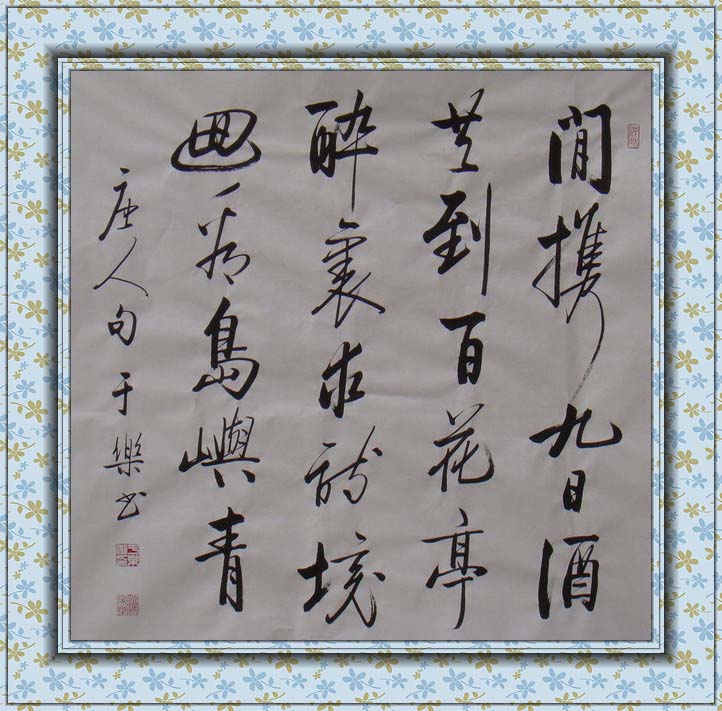 閒携九日酒
共到百花亭
醉裏求詩境
回看島嶼青
唐人句于樂书